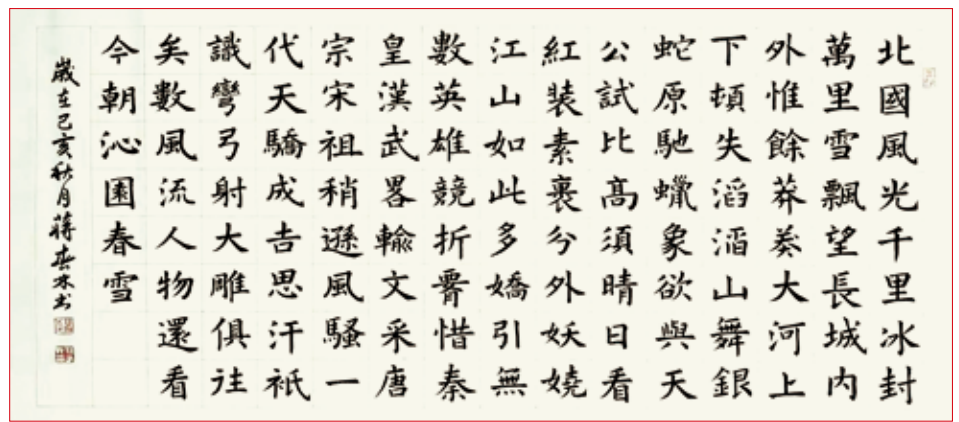 北國風光千里冰封
萬里雪飄望長城內
外惟餘莽莽大河上
下頓失滔滔山舞銀
蛇原馳蠟象欲與天
公試比高須晴日看
紅裝素裹分外妖嬈
江山如此多嬌引無
數英雄競折惜秦
皇漢武畧輸文采唐
宗宋祖稍遜風騷一
代天驕成吉思汗祇
識彎弓射大雕俱往
矣數風流人物還看
今朝沁園春雪
歲在己亥秋月蔣木书